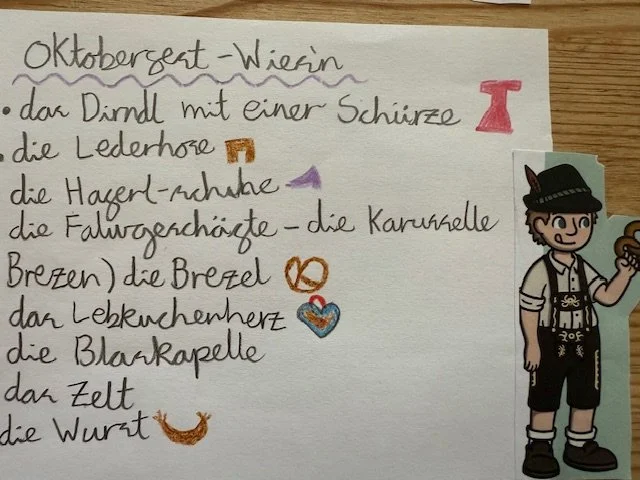 Oktoberfest - Wiesn
• das Dirndl mit einer Schürze
• die Lederhose
die Haferl-schuhe
die Fahrgeschäfte - die Karusselle
Brezen) die Brezel
das Lebkuchenherz
die Blaskapelle
das Zelt
die Wurst